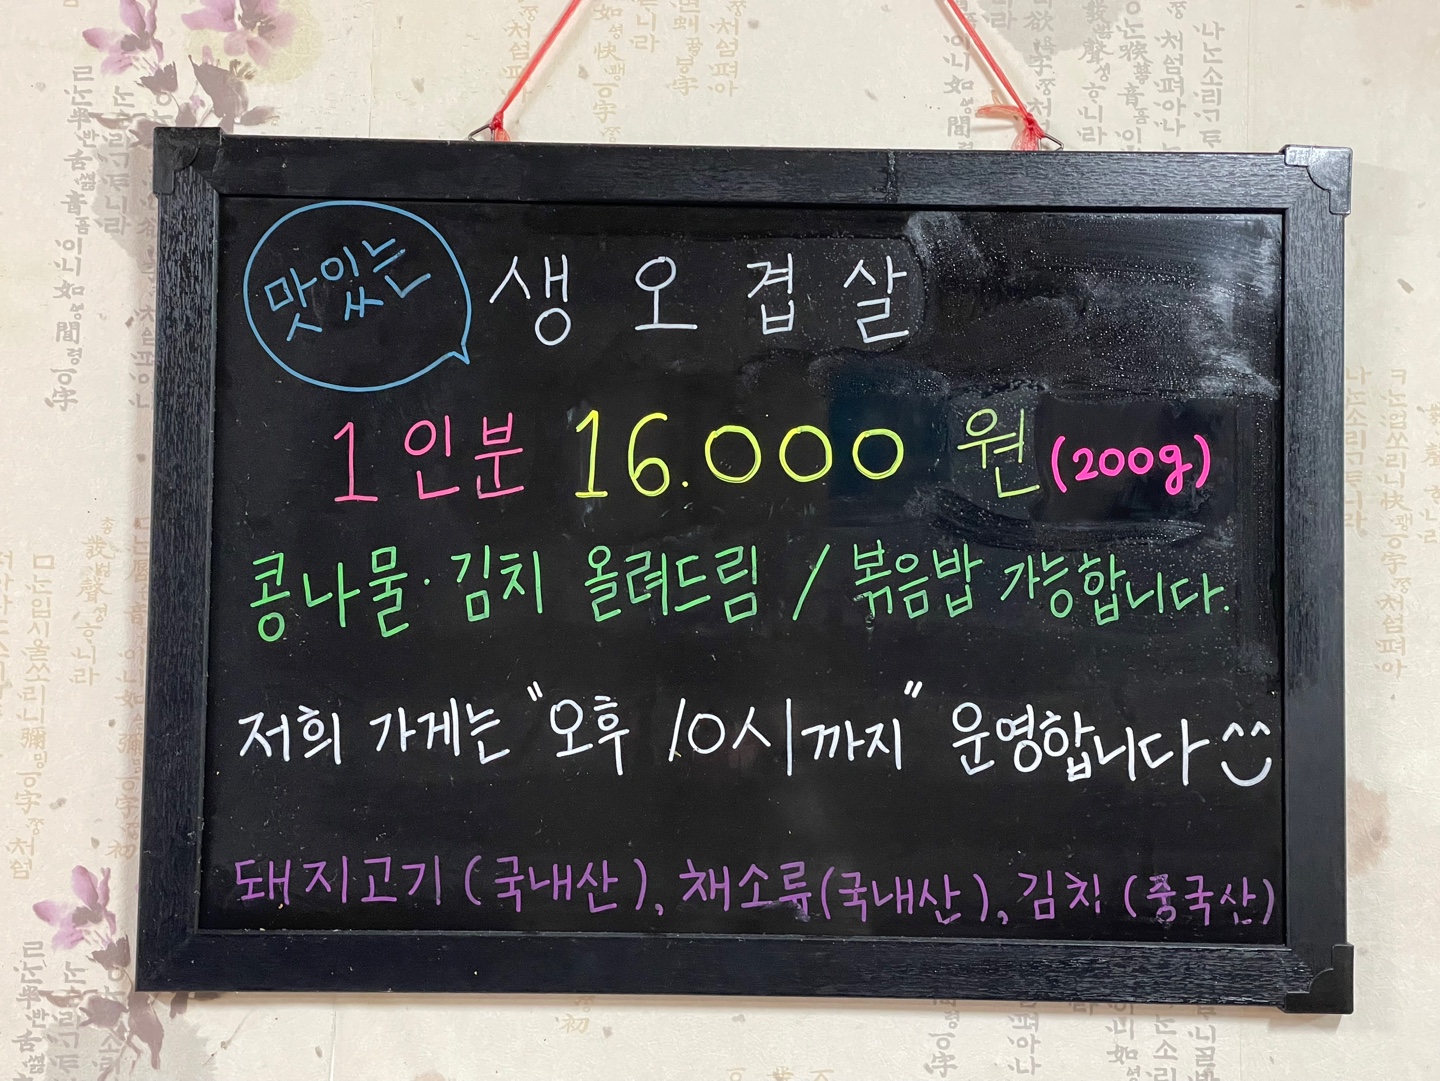 맛있는 생 오 겹 살
1 인분 16.000 원 (200g)
콩나물·김치 올려드림 / 볶음밥 가능합니다.
저희 가게는 "오후 10시까지" 운영합니다 ^^
돼지고기 (국내산), 채소류(국내산), 김치 (중국산)